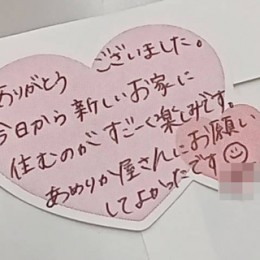 ありがとう
ございました。
今日から新しいお家に
住むのがすごーく楽しみです。
あめりか屋さんにお願い
してよかったです